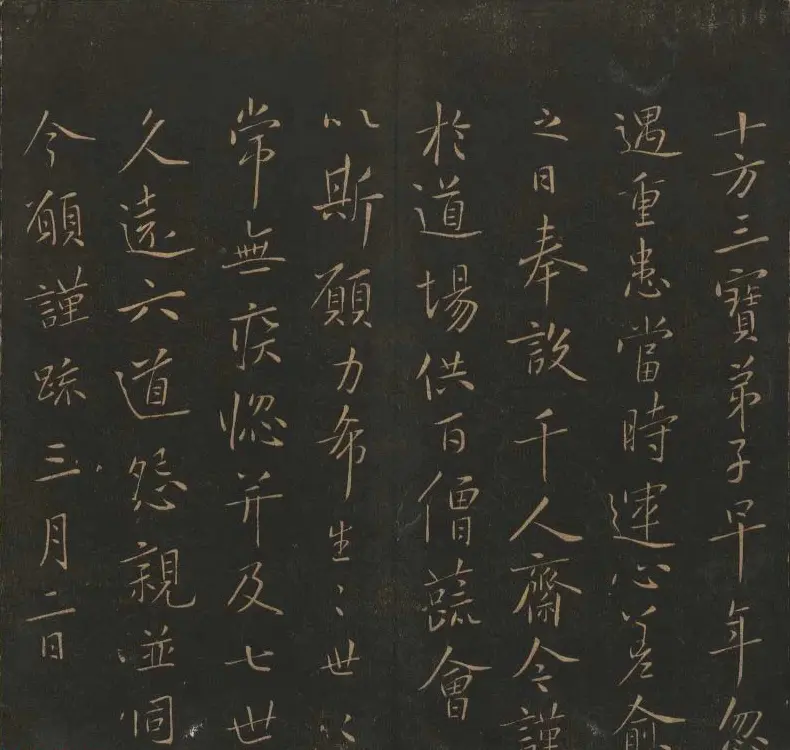 十方三寶弟子早年忽
遇重患當時運心差愈
之日奉設千人齋今謹
於道場供百僧蔬會
以斯願力希生〻世〻
常無疾惱并及七世
久遠六道怨親並同
今願謹疏三月二日